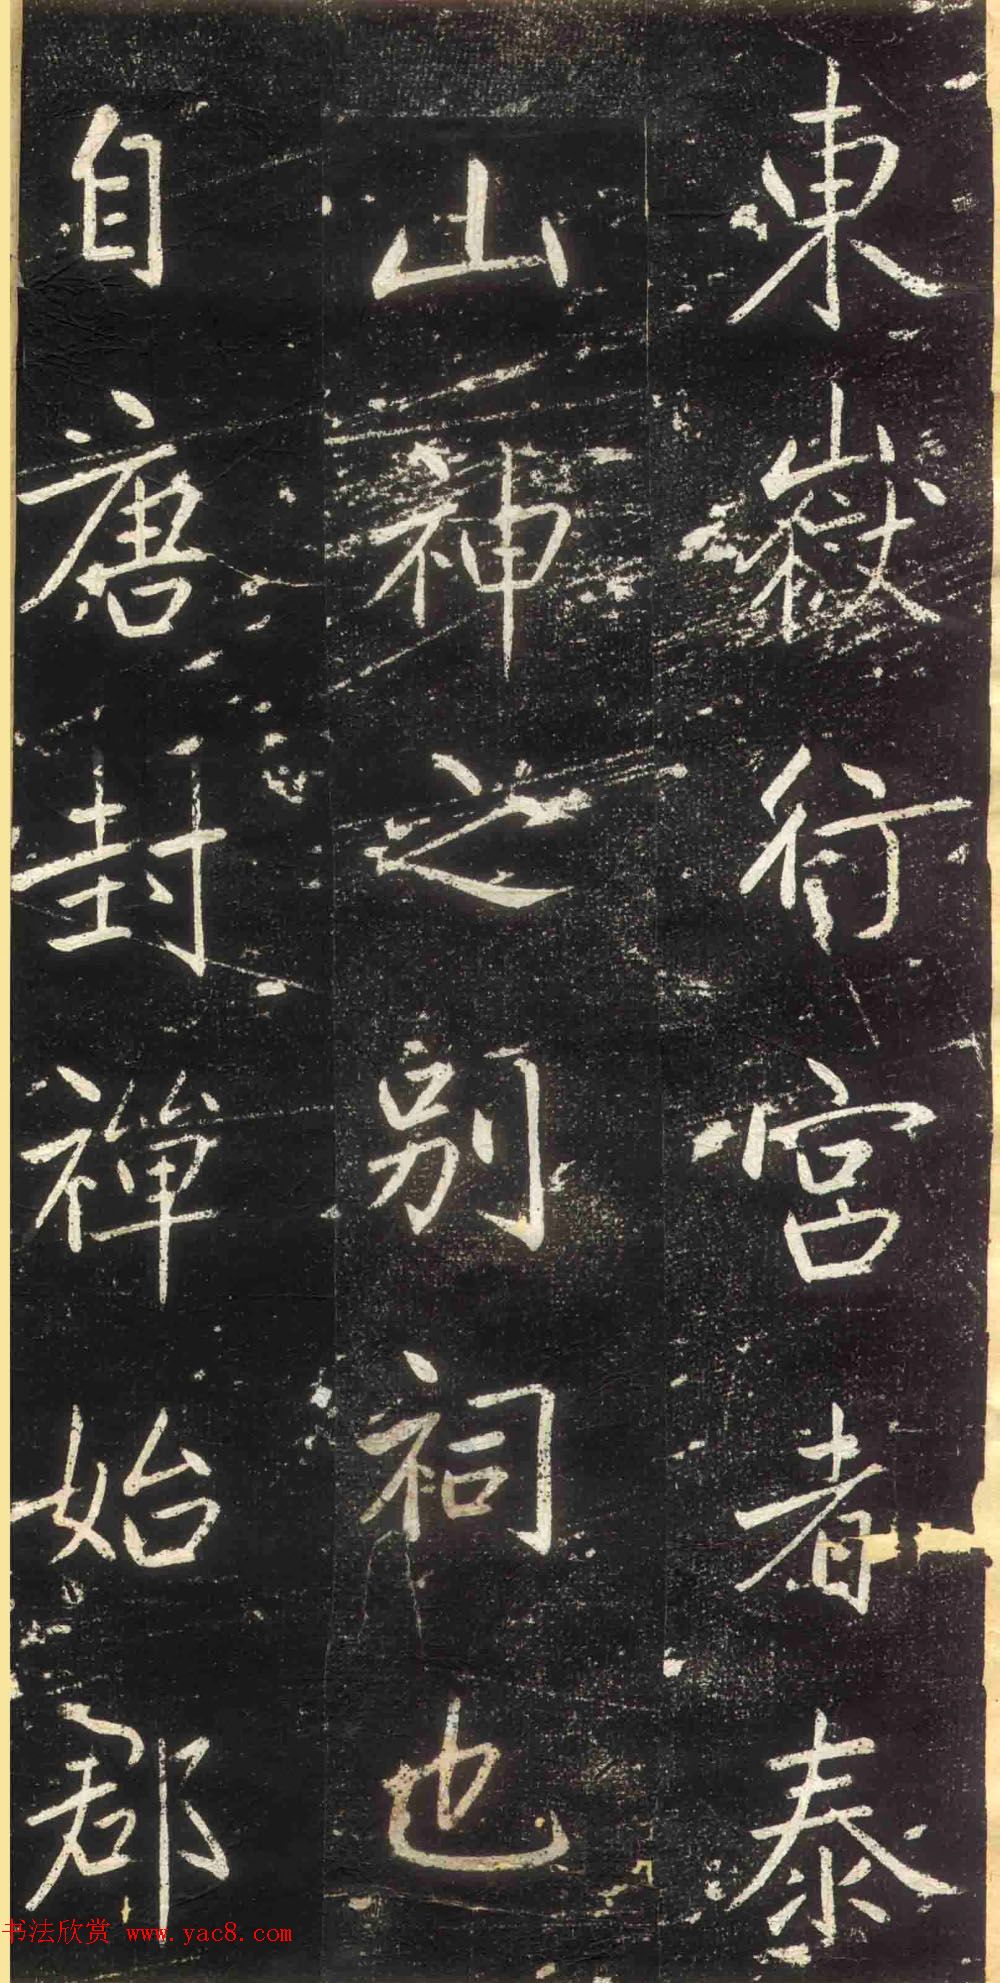 東嶽行宮者泰
山神之別祠也
自唐封禪始郡
书法欣赏 www.yac8.com